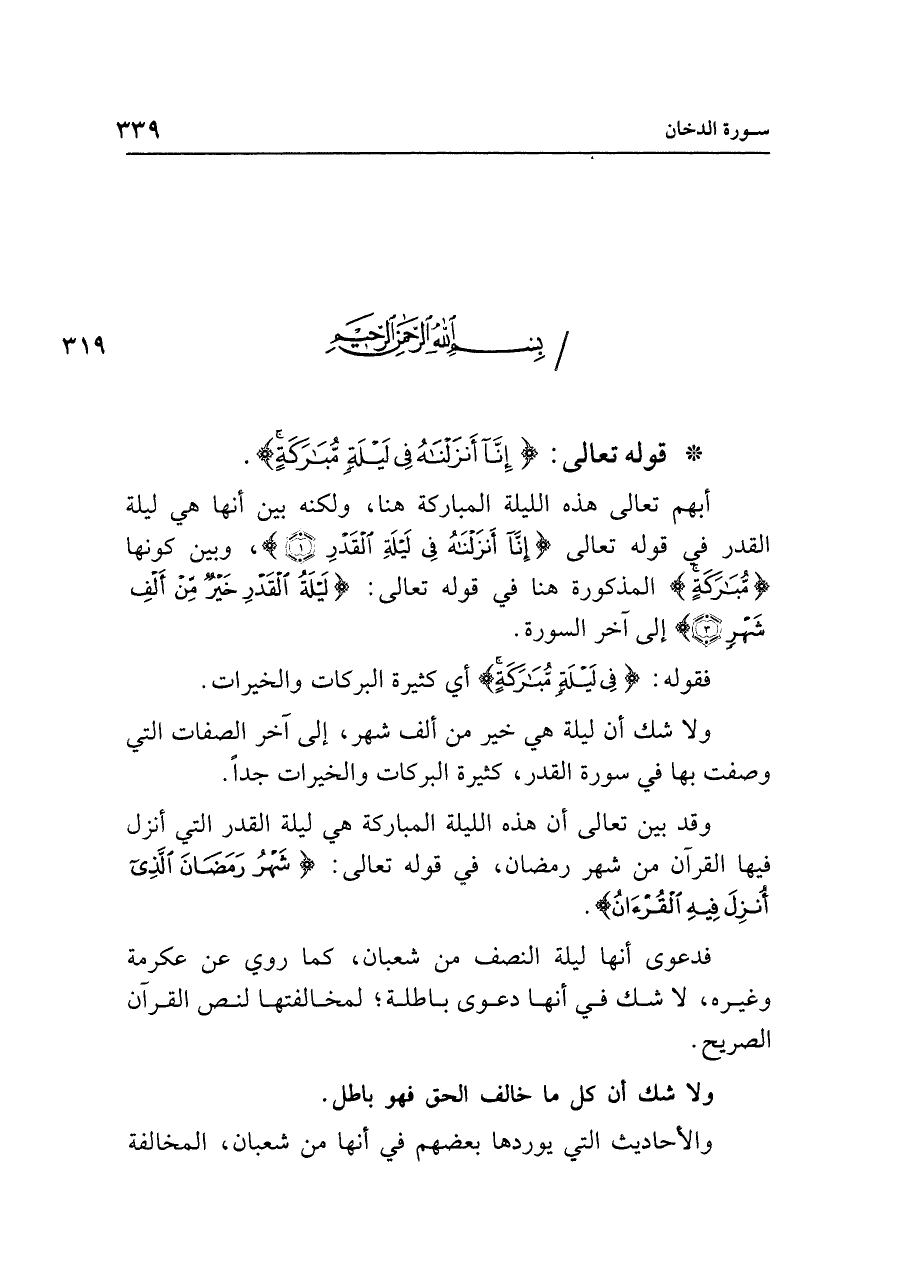 سورة الدخان ٣٣٩
/ بِسْمِ اللَّهِ الرَّحْمَٰنِ الرَّحِيمِ ٣١٩
* قوله تعالى: ﴿ إِنَّآ أَنزَلْنَٰهُ فِى لَيْلَةٍ مُّبَٰرَكَةٍ ۚ﴾ .
أبهم تعالى هذه الليلة المباركة هنا، ولكنه بين أنها هي ليلة
القدر في قوله تعالى ﴿ إِنَّآ أَنزَلْنَٰهُ فِى لَيْلَةِ ٱلْقَدْرِ ۝١ ﴾، وبين كونها
﴿ مُّبَٰرَكَةٍ ۚ﴾ المذكورة هنا في قوله تعالى: ﴿ لَيْلَةُ ٱلْقَدْرِ خَيْرٌ مِّنْ أَلْفِ
شَهْرٍ ۝٣ ﴾ إلى آخر السورة.
فقوله: ﴿ فِى لَيْلَةٍ مُّبَٰرَكَةٍ ۚ﴾ أي كثيرة البركات والخيرات.
ولا شك أن ليلة هي خير من ألف شهر، إلى آخر الصفات التي
وصفت بها في سورة القدر، كثيرة البركات والخيرات جداً.
وقد بين تعالى أن هذه الليلة المباركة هي ليلة القدر التي أنزل
فيها القرآن من شهر رمضان، في قوله تعالى: ﴿ شَهْرُ رَمَضَانَ ٱلَّذِىٓ
أُنزِلَ فِيهِ ٱلْقُرْءَانُ﴾ .
فدعوى أنها ليلة النصف من شعبان، كما روي عن عكرمة
وغيره، لا شك في أنها دعوى باطلة؛ لمخالفتها لنص القرآن
الصريح.
ولا شك أن كل ما خالف الحق فهو باطل.
والأحاديث التي يوردها بعضهم في أنها من شعبان، المخالفة